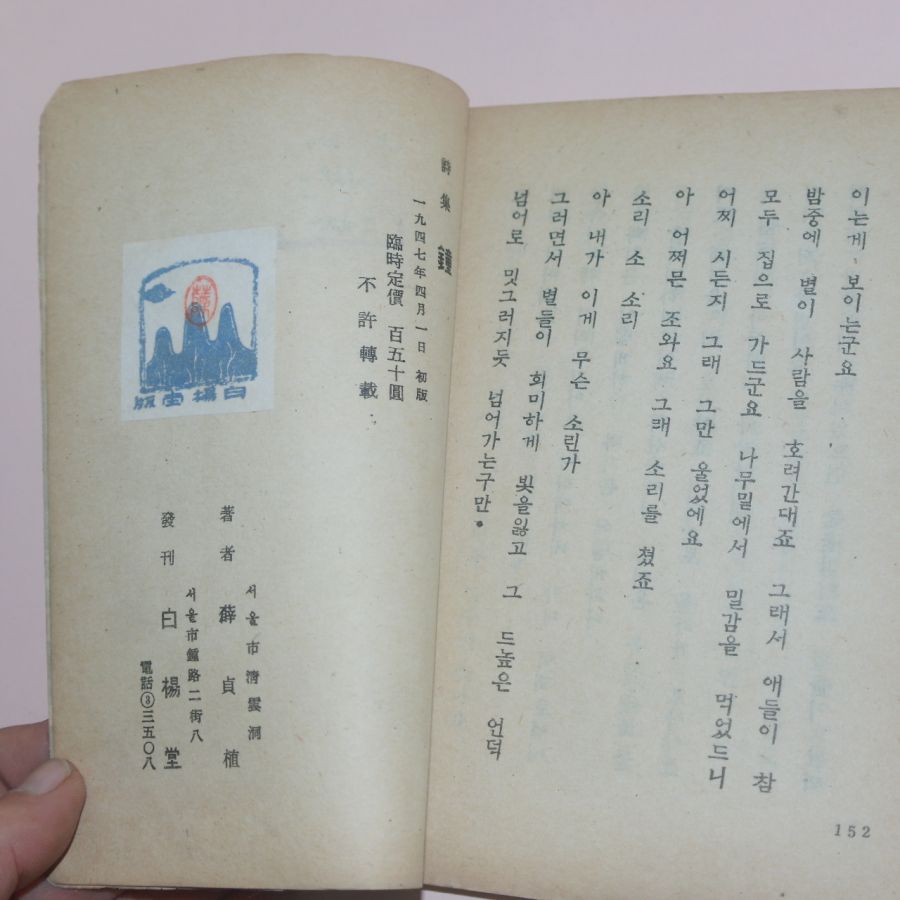 이는게 보이는군요
밤중에 별이 사람을 호려간대죠 그래서 애들이 참
모두 집으로 가드군요 나무밑에서 밀감을 먹었드니
어찌 시든지 그래 그만 울었에요
아 어쩌믄 조와요 그래 소리를 쳤죠
소리 소 소리
아 내가 이게 무슨 소린가
그러면서 별들이 희미하게 빛을잃고 그 드높은 언덕
넘어로 밋그러지듯 넘어가는구만.
152
詩集 鐘
一九四七年四月一日 初版
臨時定價 百五十圓
不許轉載
서울市淸雲洞
著者 薛貞植
서울市鍾路二街八
發刊 白楊堂
電話③三五〇八
白楊堂版